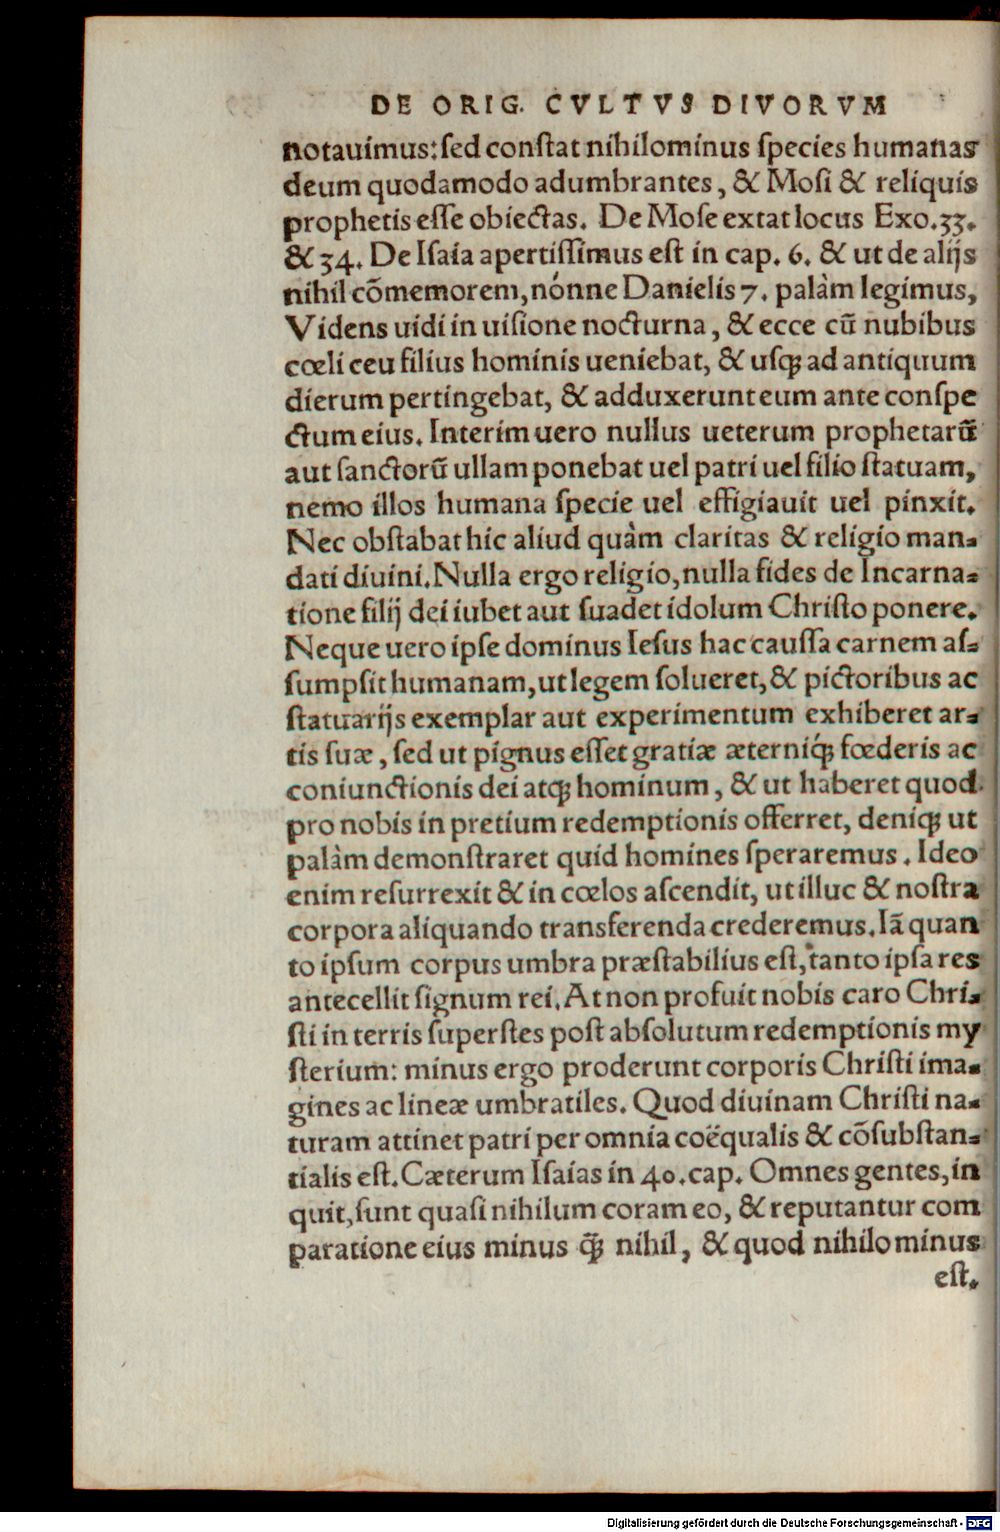 DE ORIG. CVLTVS DIVORVM
notauimus: sed constat nihilominus species humanas
deum quodamodo adumbrantes, & Mosi & reliquis
prophetis esse obiectas. De Mose extat locus Exo.33.
& 34. De Isaia apertissimus est in cap. 6. & ut de alijs
nihil cõmemorem, nónne Danielis 7. palàm legimus,
Videns uidi in uisione nocturna, & ecce cũ nubibus
cœli ceu filius hominis ueniebat, & usqꝫ ad antiquum
dierum pertingebat, & adduxerunt eum ante conspe
ctum eius. Interim uero nullus ueterum prophetarũ
aut sanctorũ ullam ponebat uel patri uel filio statuam,
nemo illos humana specie uel effigiauit uel pinxit.
Nec obstabat hic aliud quàm claritas & religio man-
dati diuini. Nulla ergo religio, nulla fides de Incarna-
tione filij dei iubet aut suadet idolum Christo ponere.
Neque uero ipse dominus Iesus hac caussa carnem as-
sumpsit humanam, ut legem solueret, & pictoribus ac
statuarijs exemplar aut experimentum exhiberet ar-
tis suæ, sed ut pignus esset gratiæ æterniqꝫ́ fœderis ac
coniunctionis dei atqꝫ hominum, & ut haberet quod
pro nobis in pretium redemptionis offerret, deniqꝫ ut
palàm demonstraret quid homines speraremus. Ideo
enim resurrexit & in cœlos ascendit, ut illuc & nostra
corpora aliquando transferenda crederemus. Iã quan
to ipsum corpus umbra præstabilius est, tanto ipsa res
antecellit signum rei. At non profuit nobis caro Chri-
sti in terris superstes post absolutum redemptionis my
sterium: minus ergo proderunt corporis Christi ima-
gines ac lineæ umbratiles. Quod diuinam Christi na-
turam attinet patri per omnia coëqualis & cõsubstan-
tialis est. Cæterum Isaias in 40. cap. Omnes gentes, in
quit, sunt quasi nihilum coram eo, & reputantur com
paratione eius minus q̃ꝫ nihil, & quod nihilominus
est.
Digitalisierung gefördert durch die Deutsche Forschungsgemeinschaft - DFG